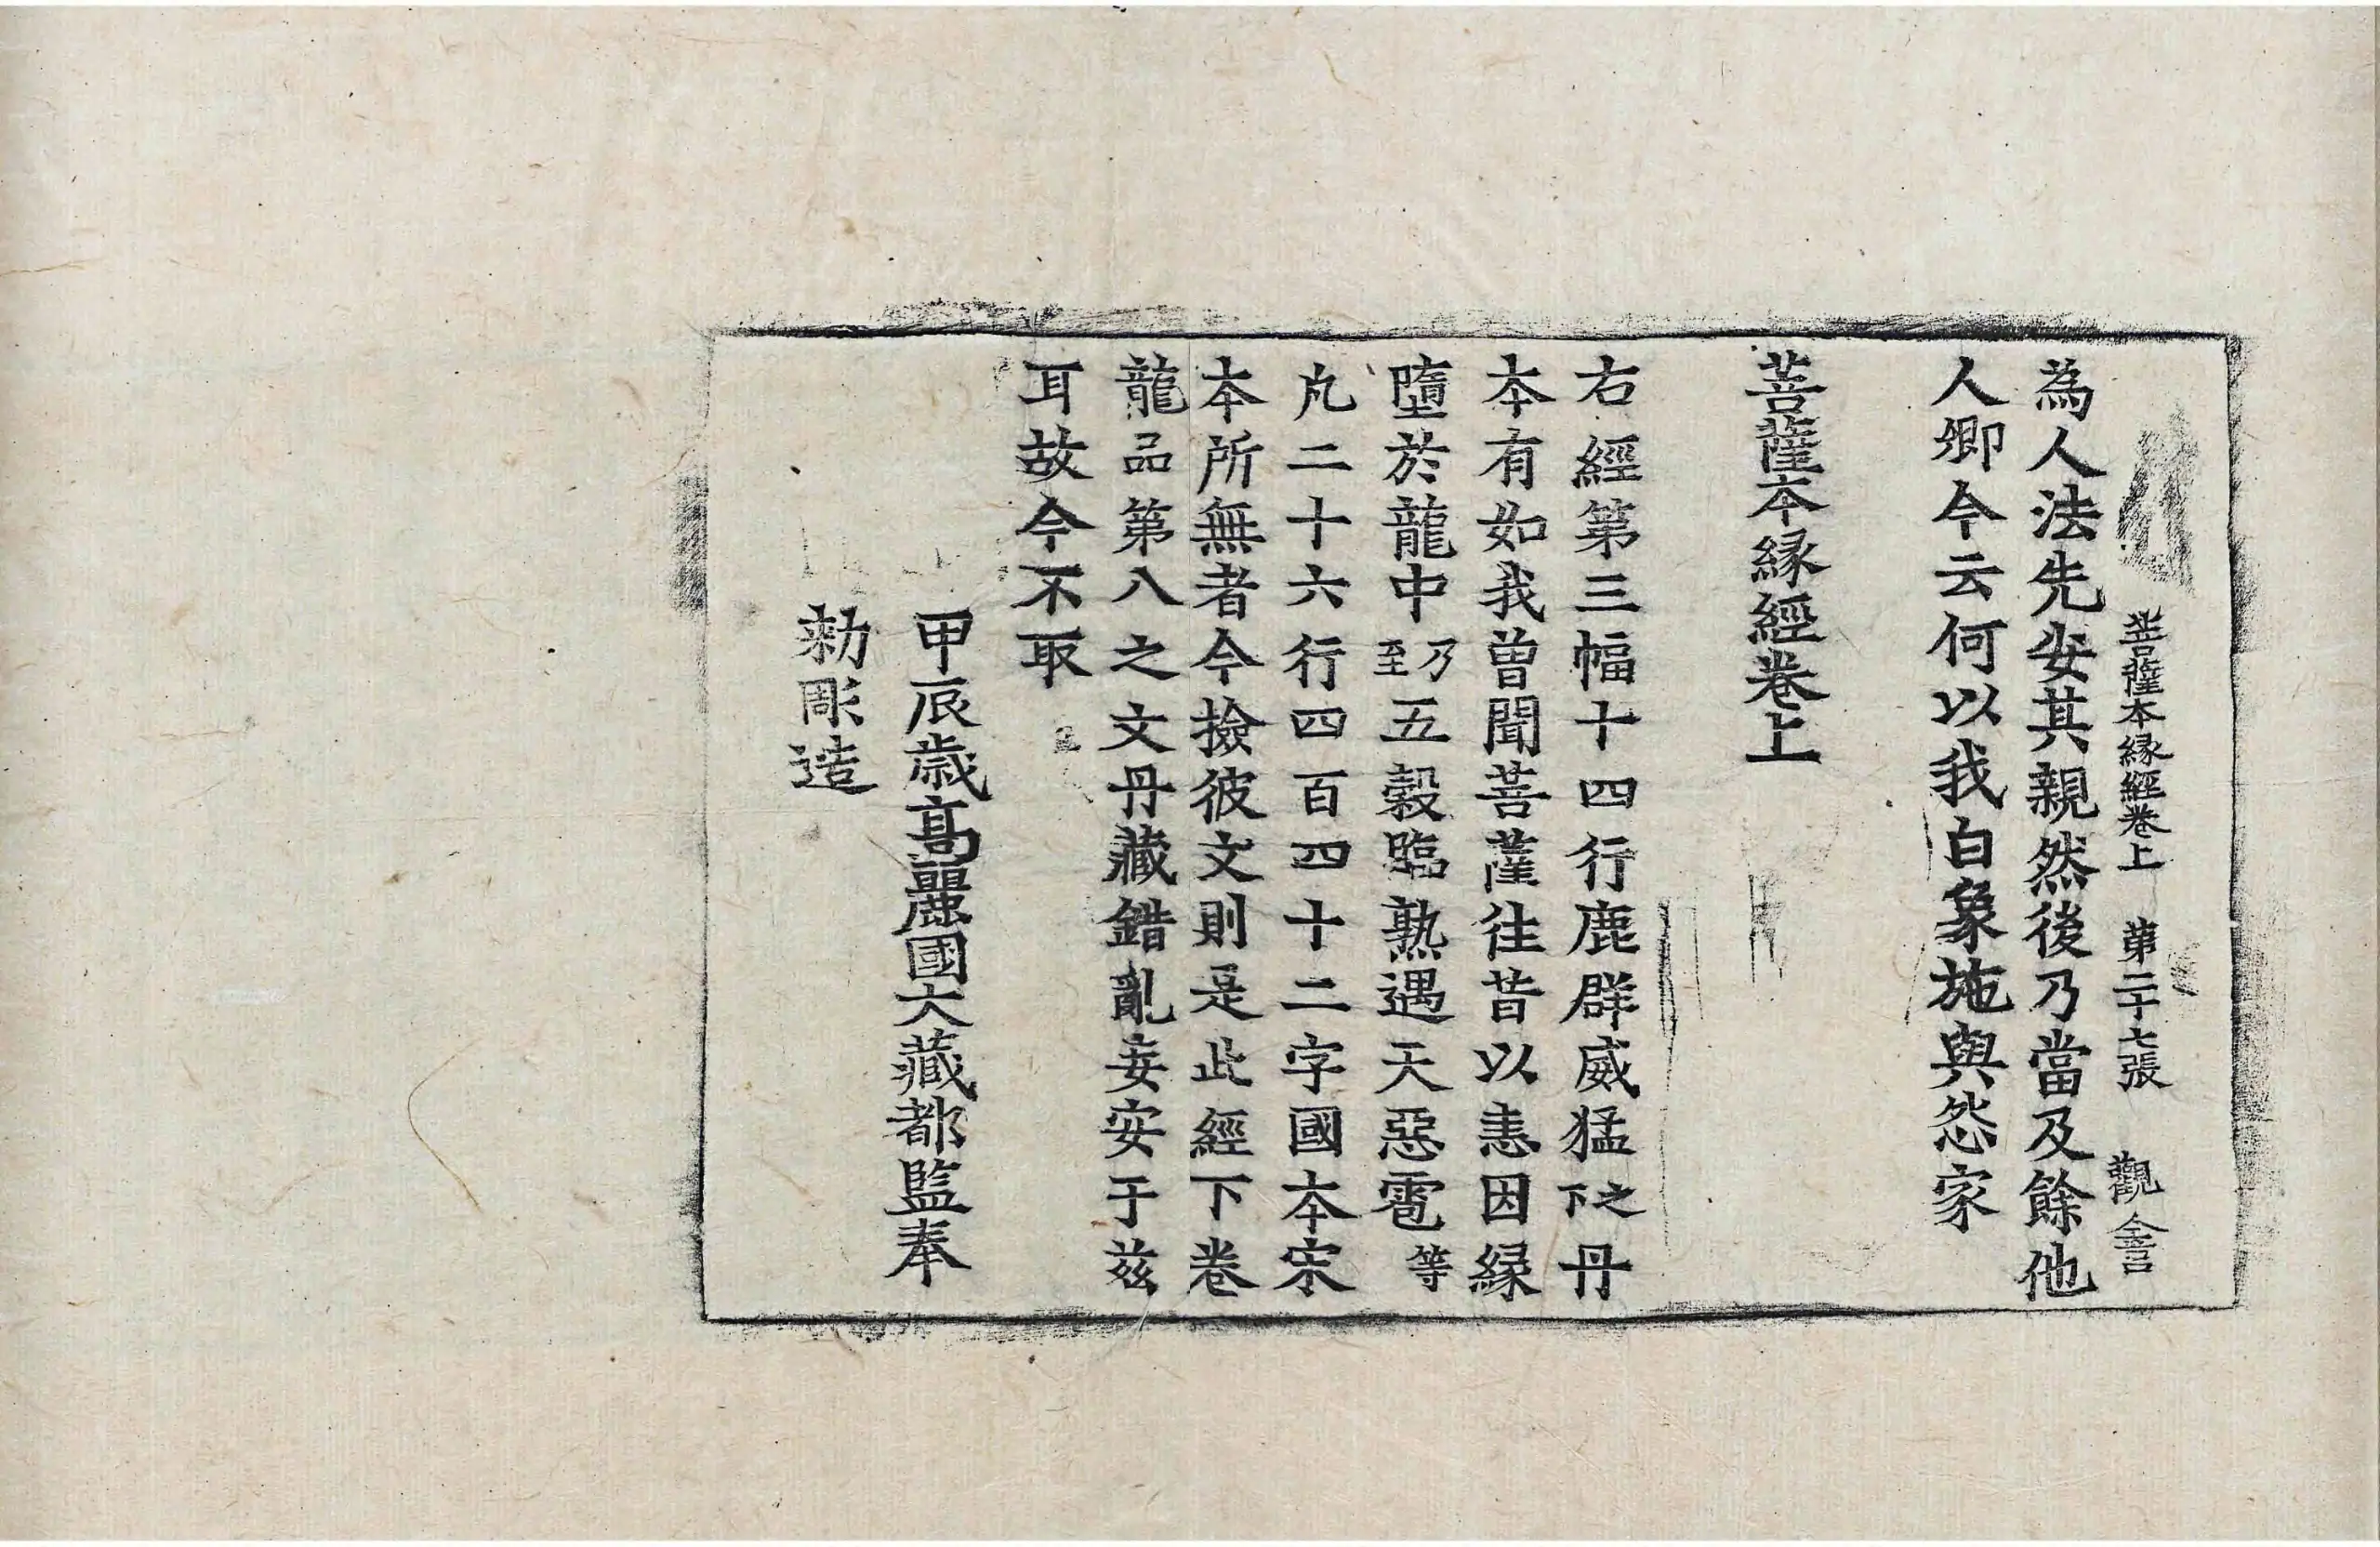 菩薩本縁經卷上 第二十七張 觀
為人法先安其親然後乃當及餘他
人卿今云何以我白象施與怨家
菩薩本縁經卷上
右經第三幅十四行鹿群威猛之下丹
本有如我曾聞菩薩徃昔以恚因縁
墮於龍中乃至五穀臨熟遇天惡雹等
凡二十六行四百四十二字國本宋
本所無者今撿彼文則是此經下卷
龍品第八之文丹藏錯亂妄安于兹
耳故今不取
甲辰歳髙麗國大藏都監奉
勑彫造